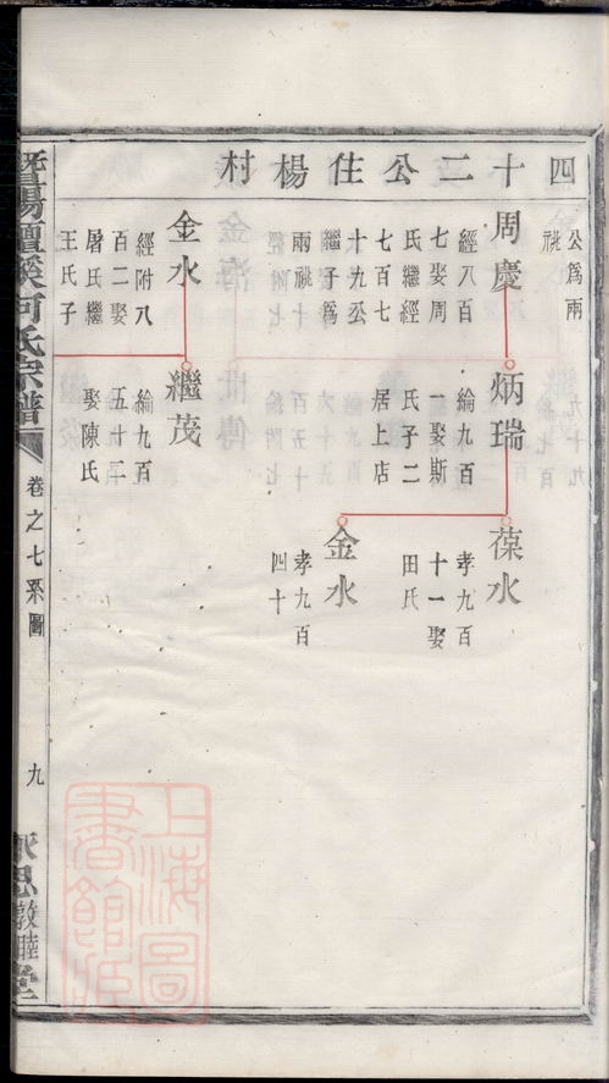 四十二公住楊村
公爲兩
祧
周慶
經八百
七娶周
氏繼經
七百七
十九公
繼子爲
兩祧
金水
經附八
百二娶
屠氏繼
王氏子
炳瑞
綸九百
一娶斯
氏子二
居上店
繼茂
綸九百
五廿二
娶陳氏
葆水
孝九百
十一娶
田氏
金水
孝九百
四十
暨陽壇溪何氏宗譜
卷之七系圖
九
永思敦睦堂
上海圖書館藏